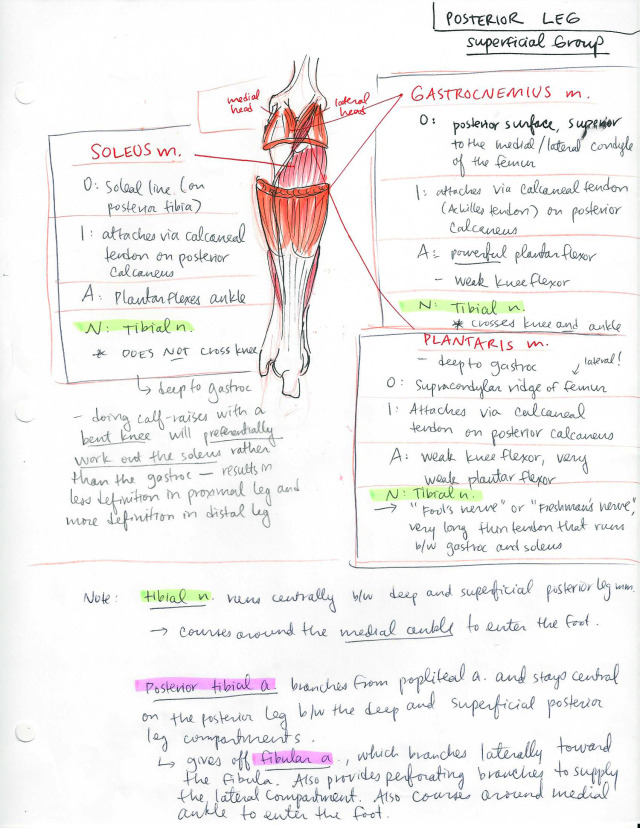 POSTERIOR LEG
superficial Group
medial head
lateral head
GASTROCNEMIUS m.
O: posterior surface, superior
to the medial/lateral condyle
of the femur
I: attaches via calcaneal tendon
(Achilles tendon) on posterior
calcaneus
A: powerful plantarflexor
- weak knee flexor
N: Tibial n.
* crosses knee and ankle
SOLEUS m.
O: Soleal line (on
posterior tibia)
I: attaches via calcaneal
tendon on posterior
calcaneus
A: Plantarflexes ankle
N: Tibial n.
* DOES NOT cross knee
↳ deep to gastroc
- doing calf-raises with a
bent knee will preferentially
work out the soleus rather
than the gastroc - results in
less definition in proximal leg and
more definition in distal leg
PLANTARIS m.
- deep to gastroc
lateral!
O: Supracondylar ridge of femur
I: Attaches via calcaneal
tendon on posterior calcaneus
A: weak knee flexor, very
weak plantar flexor
N: Tibial n.
→ "Fool's nerve" or "Freshman's nerve",
very long thin tendon that runs
b/w gastroc and soleus
Note: tibial n. runs centrally b/w deep and superficial posterior leg mm.
→ courses around the medial ankle to enter the foot.
Posterior tibial a. branches from popliteal a. and stays central
on the posterior leg b/w the deep and superficial posterior
leg compartments.
↳ gives off fibular a., which branches laterally toward
the fibula. Also provides perforating branches to supply
the lateral compartment. Also courses around medial
ankle to enter the foot.